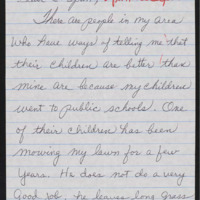 There are people in my area
who have ways of telling me that
their children are better than
mine are because my children
went to public schools. One
of their children has been
mowing my lawn for a few
years. He does not do a very
Good job. he leaves long grass